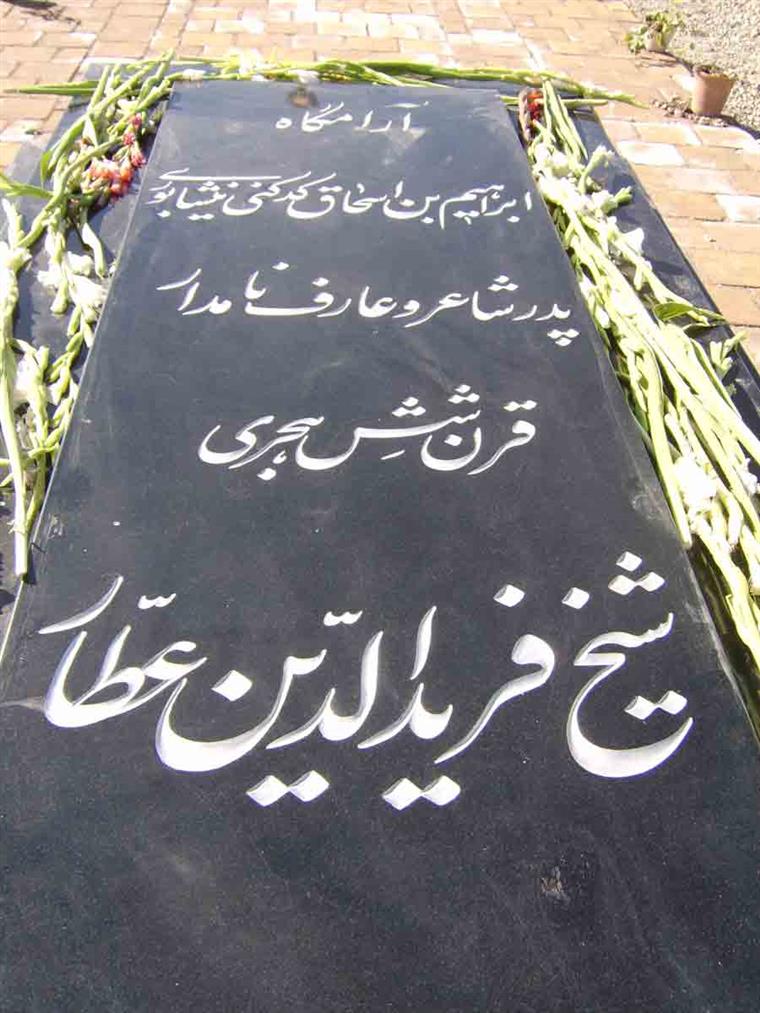 آرامگاه
ابراهیم بن اسحاق کدکنی نیشابوری
پدر شاعر و عارف نامدار
قرن شش هجری
شیخ فریدالدّین عطّار